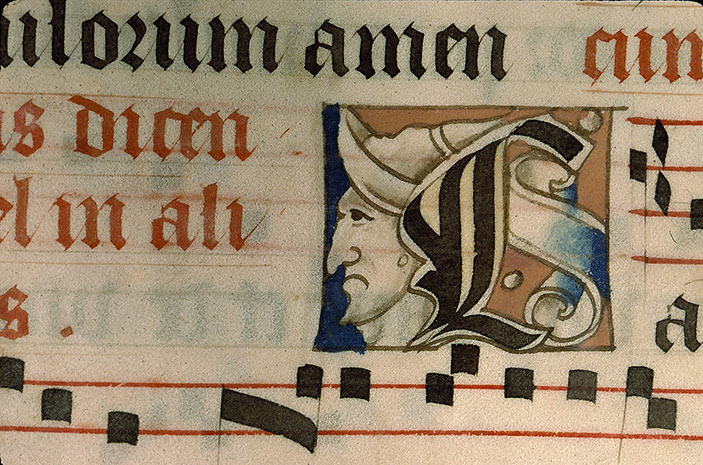 ulorum amen cum
us dicen
el in ali
s. L a